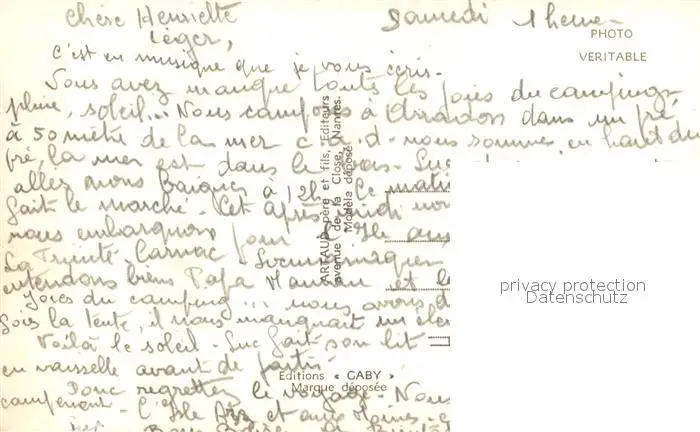 Chère Henriette Samedi 1 heure
Léger,
PHOTO
VERITABLE
C'est en musique que je vous écris.
Vous avez manqué toutes les joies du camping
pluie, soleil... Nous campons à Arradon dans un pré,
à 50 mètre de la mer c. à. d. nous sommes en haut du
pré, la mer est dans le bas. Luc
allez nous baigner à 12h. Ce matin
fait le marché. Cet après midi nous
nous embarquons pour l'Ile aux
La Trinité. Carnac.
entendons bien Papa Maman et l
Joies du camping... nous avons d
fois la tente, il nous manquait un
Voilà le soleil. Luc fait son lit
en vaisselle avant de partir.
Donc regrettez le voyage. Nous
campement. L'Isle Arz et aux Moines.
ARTAUD père et fils, Editeurs
avenue de la Close, Nantes.
Modèle déposé
Editions « GABY »
Marque déposée
privacy protection
Datenschutz